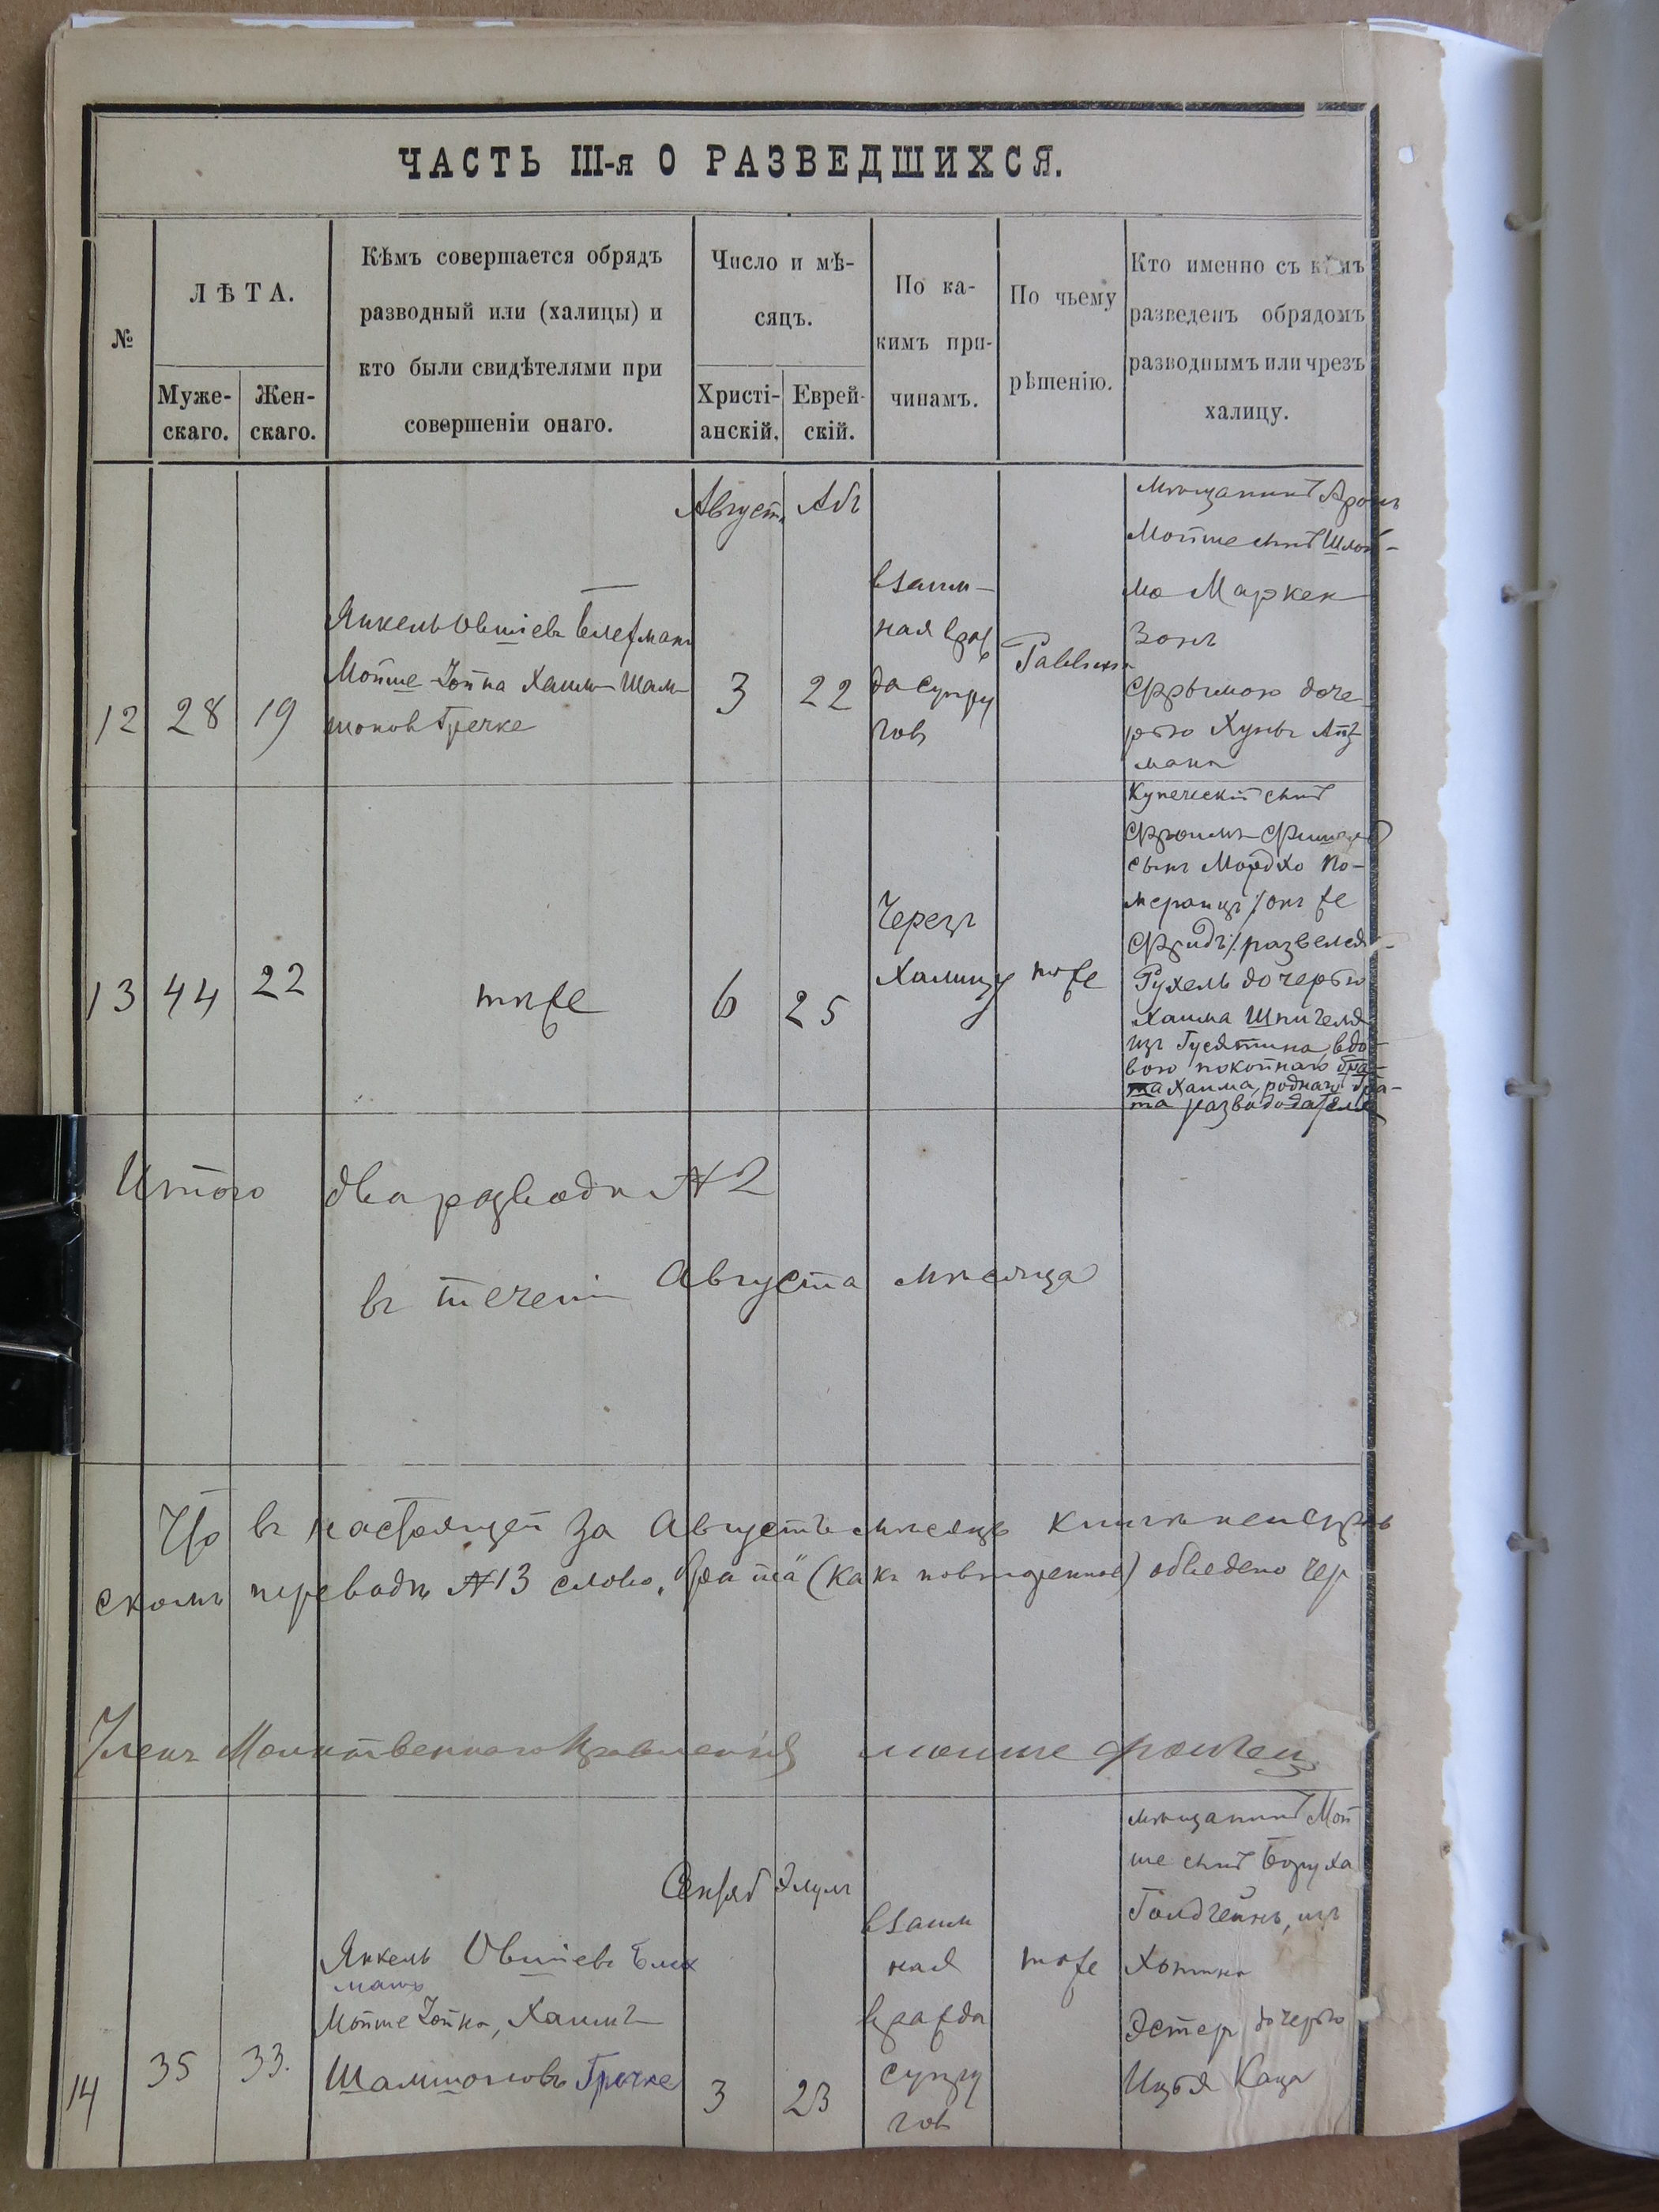 ЧАСТЬ III-я О РАЗВЕДШИХСЯ.
№
ЛѢТА.
Муже-
скаго.
Жен-
скаго.
Кѣмъ совершается обрядъ
разводный или (халицы) и
кто были свидѣтелями при
совершеніи онаго.
Число и мѣ-
сяцъ.
Христі-
анскій.
Еврей-
скій.
По ка-
кимъ при-
чинамъ.
По чьему
рѣшенію.
Кто именно съ кѣмъ
разведенъ обрядомъ
разводнымъ или чрезъ
халицу.
Августъ
Абъ
12
28
19
Янкель Овшіевъ
Мойше Хаимъ Шам-
шоновъ Гречке
3
22
взаим-
ная враж
да супру
говъ
Раввина
мѣщанинъ Аронъ
Мойше сынъ Шлой-
мо Маркен
зонъ
Фрымою доче-
рью Хуны
мана
13
44
22
тѣже
6
25
Черезъ
Халицу
тоже
Купеческій сынъ
Фроимъ
сынъ Мордхо По-
меранцъ /онъ же
Фридъ/ развелся
Рухель дочерью
Хаима Шпигеля
изъ Гусятина, вдо-
вою покойнаго бра-
та Хаима, роднаго бра-
та развододателя
Итого два развода № 2
въ теченіи Августа мѣсяца
Что въ настоящей за Августъ мѣсяцъ книгѣ
скомъ переводѣ № 13 слово „брата" (какъ повторенное) обведено чер
Членъ Молитвеннаго Правленія Моише
Сентяб
Элулъ
14
35
33.
Янкель Овшіевъ Блех
манъ
Мойше Хаимъ
Шамшоновъ Гречке
3
23
взаим
ная
вражда
супру
говъ
тоже
мѣщанинъ Мой
ше сынъ Боруха
Голдгейнъ, изъ
Хотина
Эстер дочерью
Ицья Каца